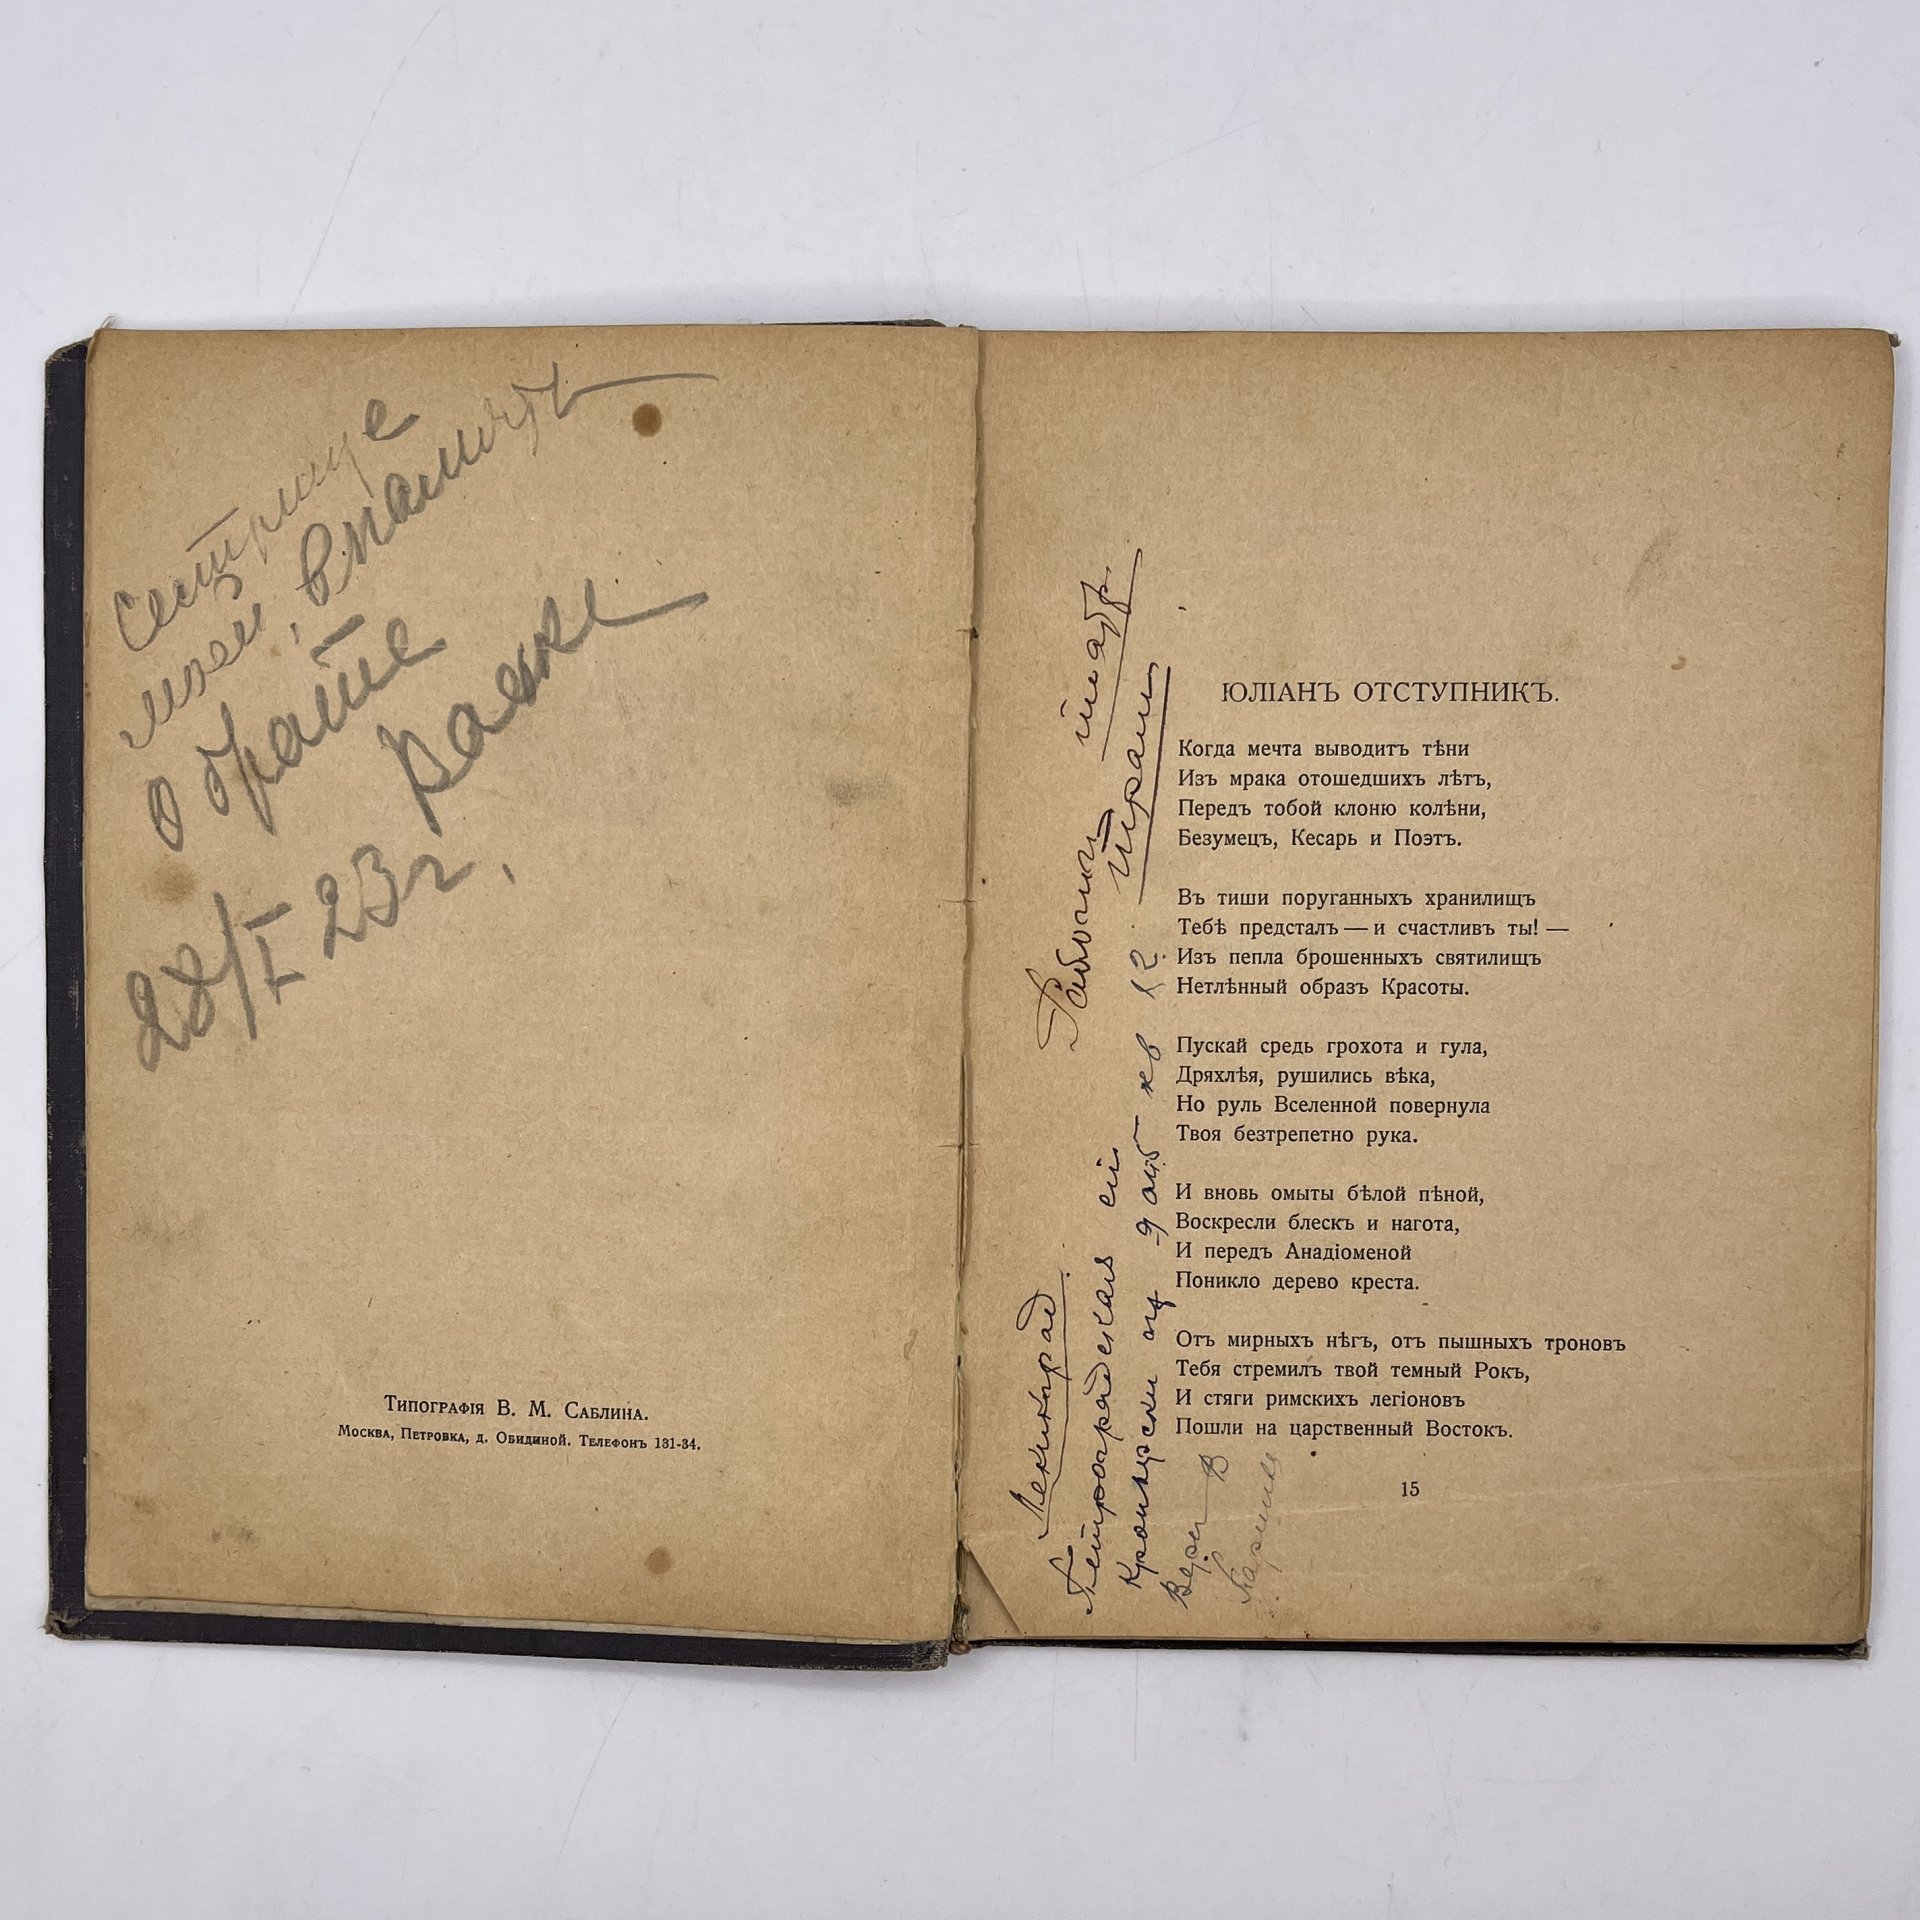 Сестрице
моей, в память
о брате
Ваське
28/I 23 г.
Типографія В. М. Саблина.
Москва, Петровка, д. Обидиной. Телефонъ 131-34.
Ленинград
Петроградская ст
Кронверкская 9 кв 12
Рабочий театр
ЮЛІАНЪ ОТСТУПНИКЪ.
Когда мечта выводитъ тѣни
Изъ мрака отошедшихъ лѣтъ,
Передъ тобой клоню колѣни,
Безумецъ, Кесарь и Поэтъ.
Въ тиши поруганныхъ хранилищъ
Тебѣ предсталъ — и счастливъ ты! —
Изъ пепла брошенныхъ святилищъ
Нетлѣнный образъ Красоты.
Пускай средь грохота и гула,
Дряхлѣя, рушились вѣка,
Но руль Вселенной повернула
Твоя безтрепетно рука.
И вновь омыты бѣлой пѣной,
Воскресли блескъ и нагота,
И передъ Анадіоменой
Поникло дерево креста.
Отъ мирныхъ нѣгъ, отъ пышныхъ троновъ
Тебя стремилъ твой темный Рокъ,
И стяги римскихъ легіоновъ
Пошли на царственный Востокъ.
15